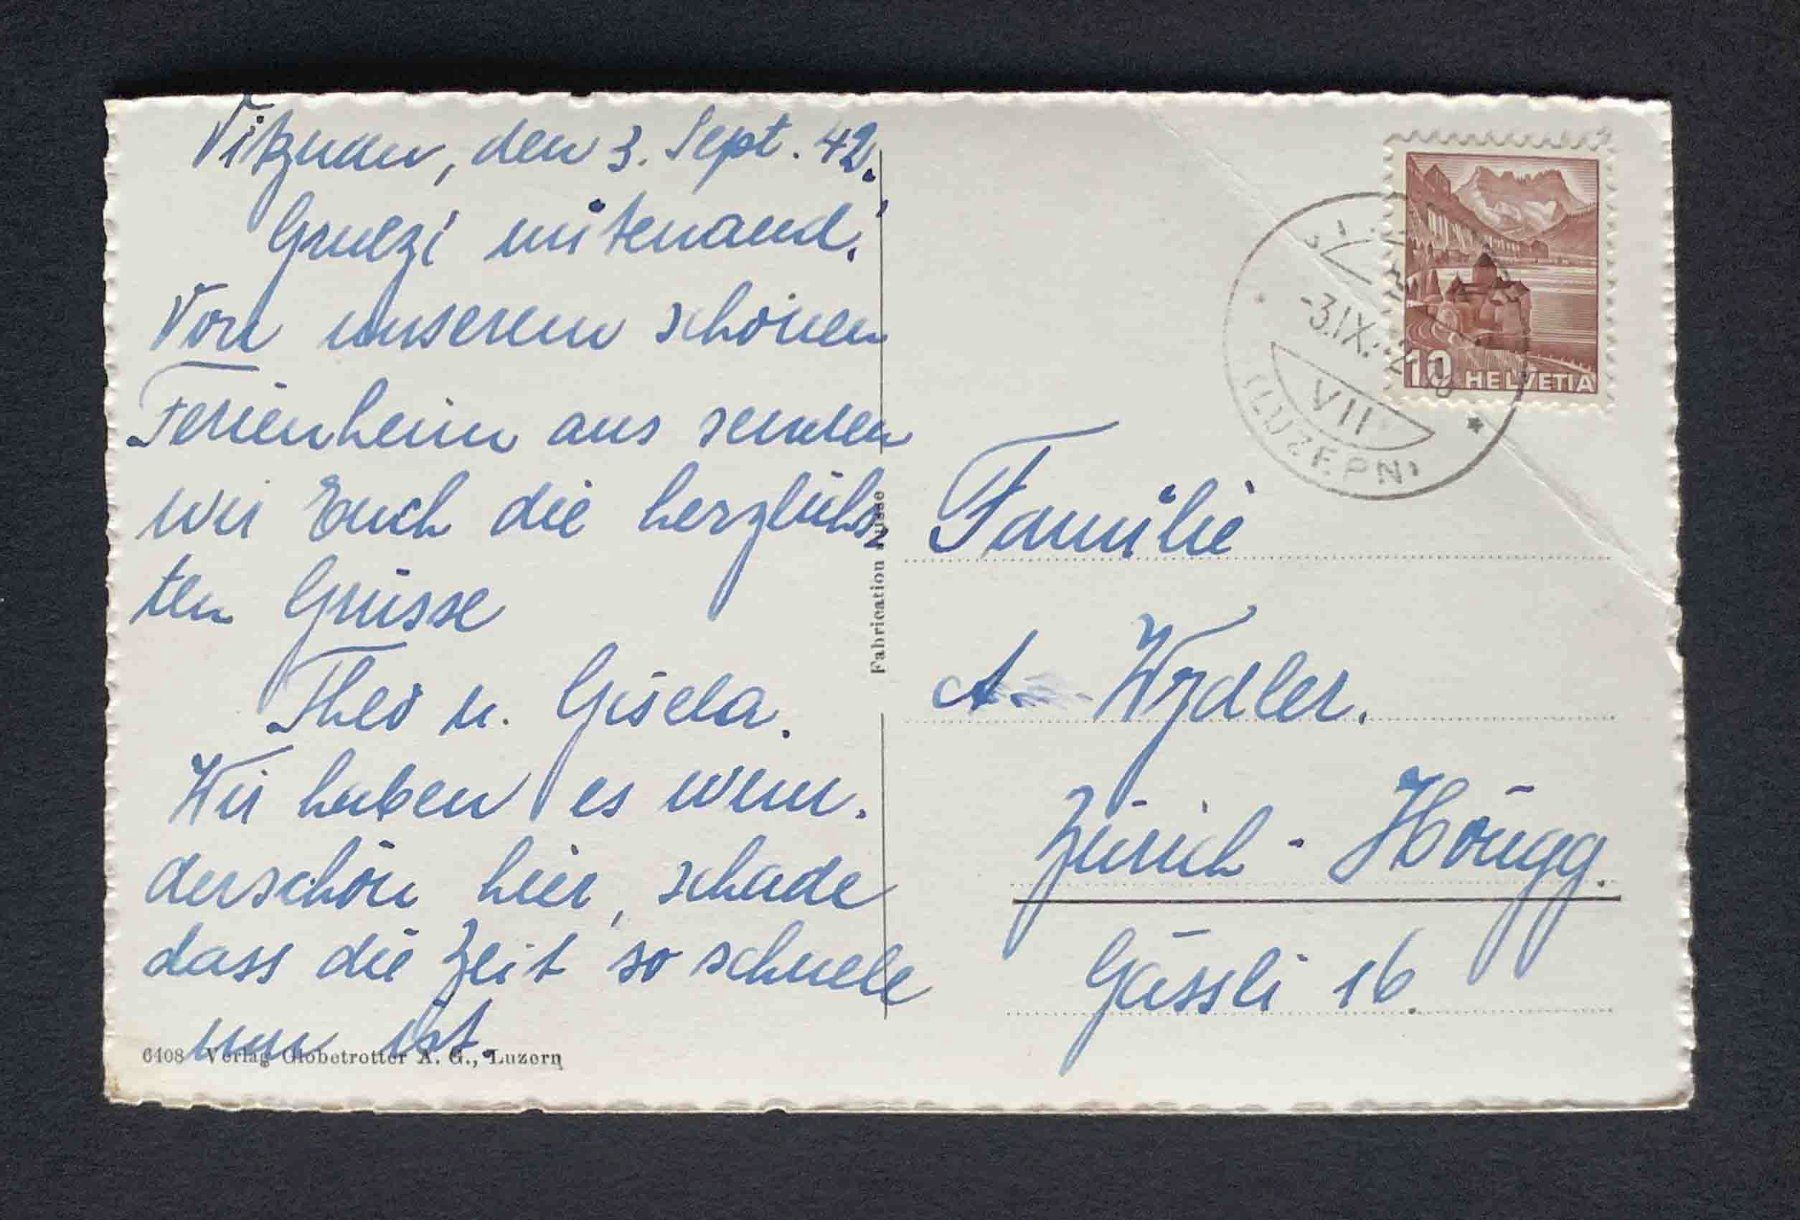 Vitznau, den 3. Sept. 42.
Gruezi mitenand.
Von unserem schönen
Ferienheim aus senden
wir Euch die herzlichs-
ten Grüsse
Theo u. Gisela.
Wir haben es wun-
derschön hier, schade
dass die Zeit so schnell
um ist.
6408 Verlag Globetrotter A. G., Luzern
Fabrication Suisse
10 HELVETIA
-3.IX.
VII
(LUZERN)
Familie
A. Wydler.
Zürich - Höngg.
Gässli 16.